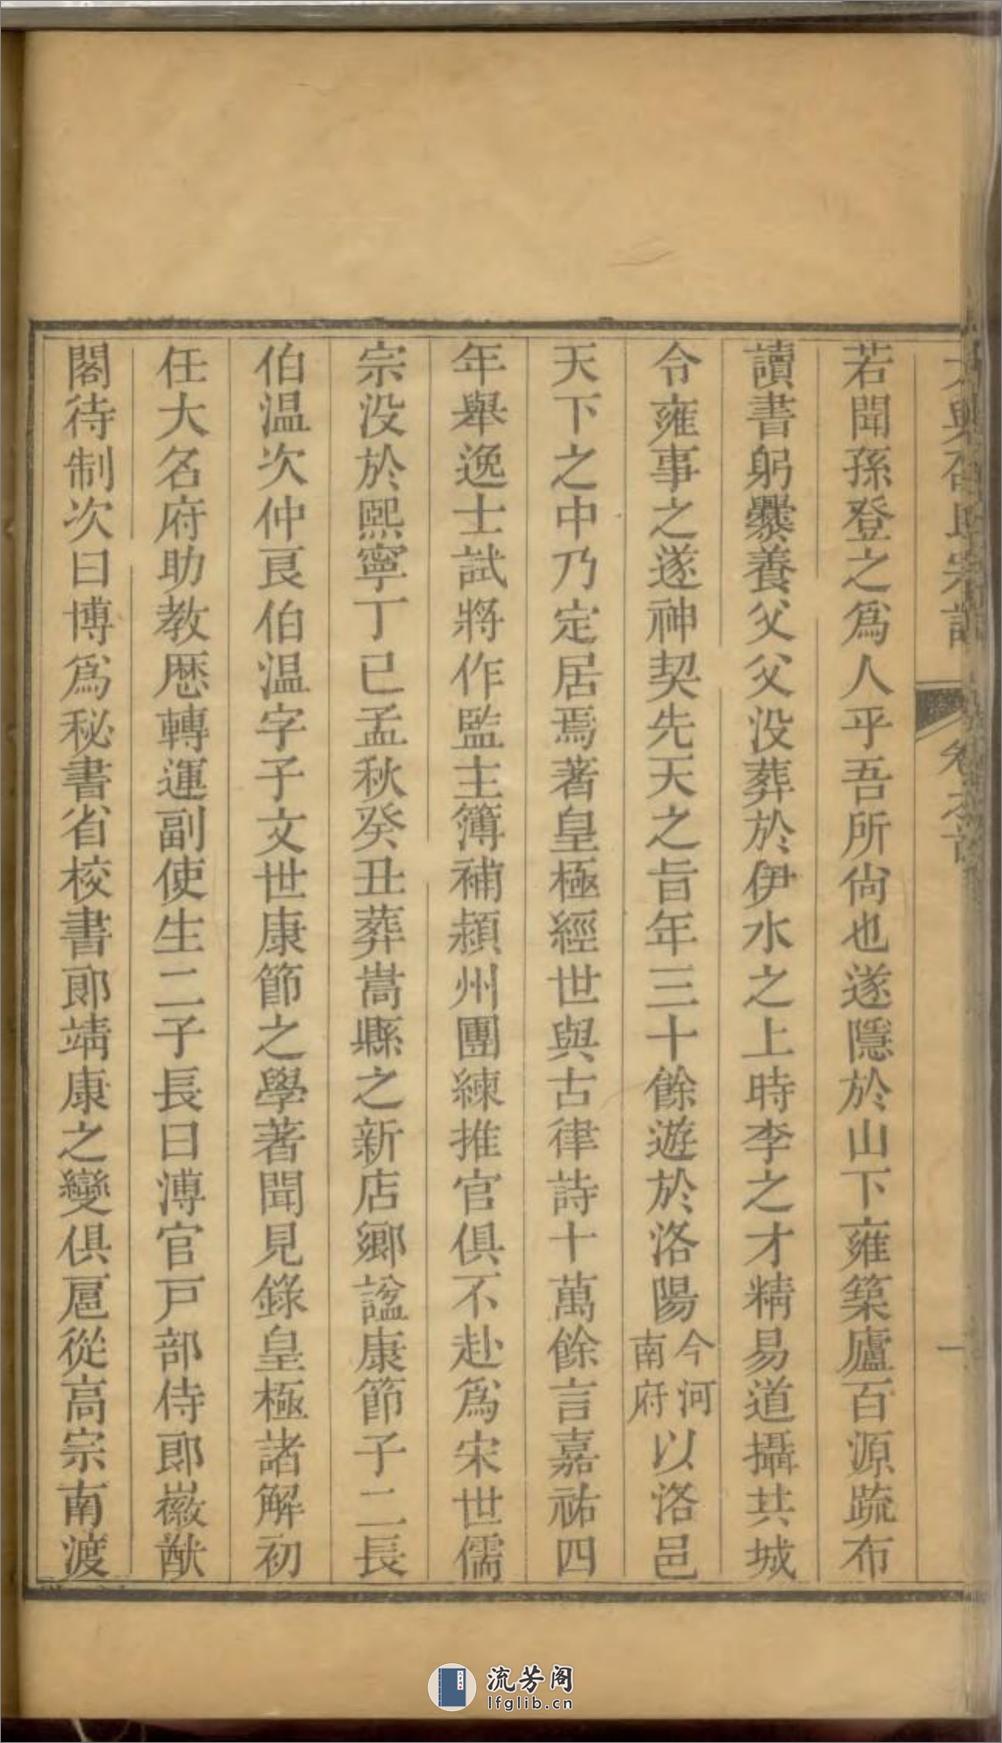 大興邵氏宗譜 卷之首 一
若聞孫登之爲人乎吾所尙也遂隱於山下雍築廬百源疏布
讀書躬爨養父父没葬於伊水之上時李之才精易道攝共城
令雍事之遂神契先天之旨年三十餘遊於洛陽今河南府以洛邑
天下之中乃定居焉著皇極經世與古律詩十萬餘言嘉祐四
年舉逸士試將作監主簿補潁州團練推官俱不赴爲宋世儒
宗没於熙寧丁巳孟秋癸丑葬嵩縣之新店鄉諡康節子二長
伯温次仲良伯温字子文世康節之學著聞見錄皇極諸解初
任大名府助教歷轉運副使生二子長曰溥官戸部侍郎徽猷
閣待制次曰博爲秘書省校書郎靖康之變俱扈從高宗南渡
流芳阁
lfglib.cn